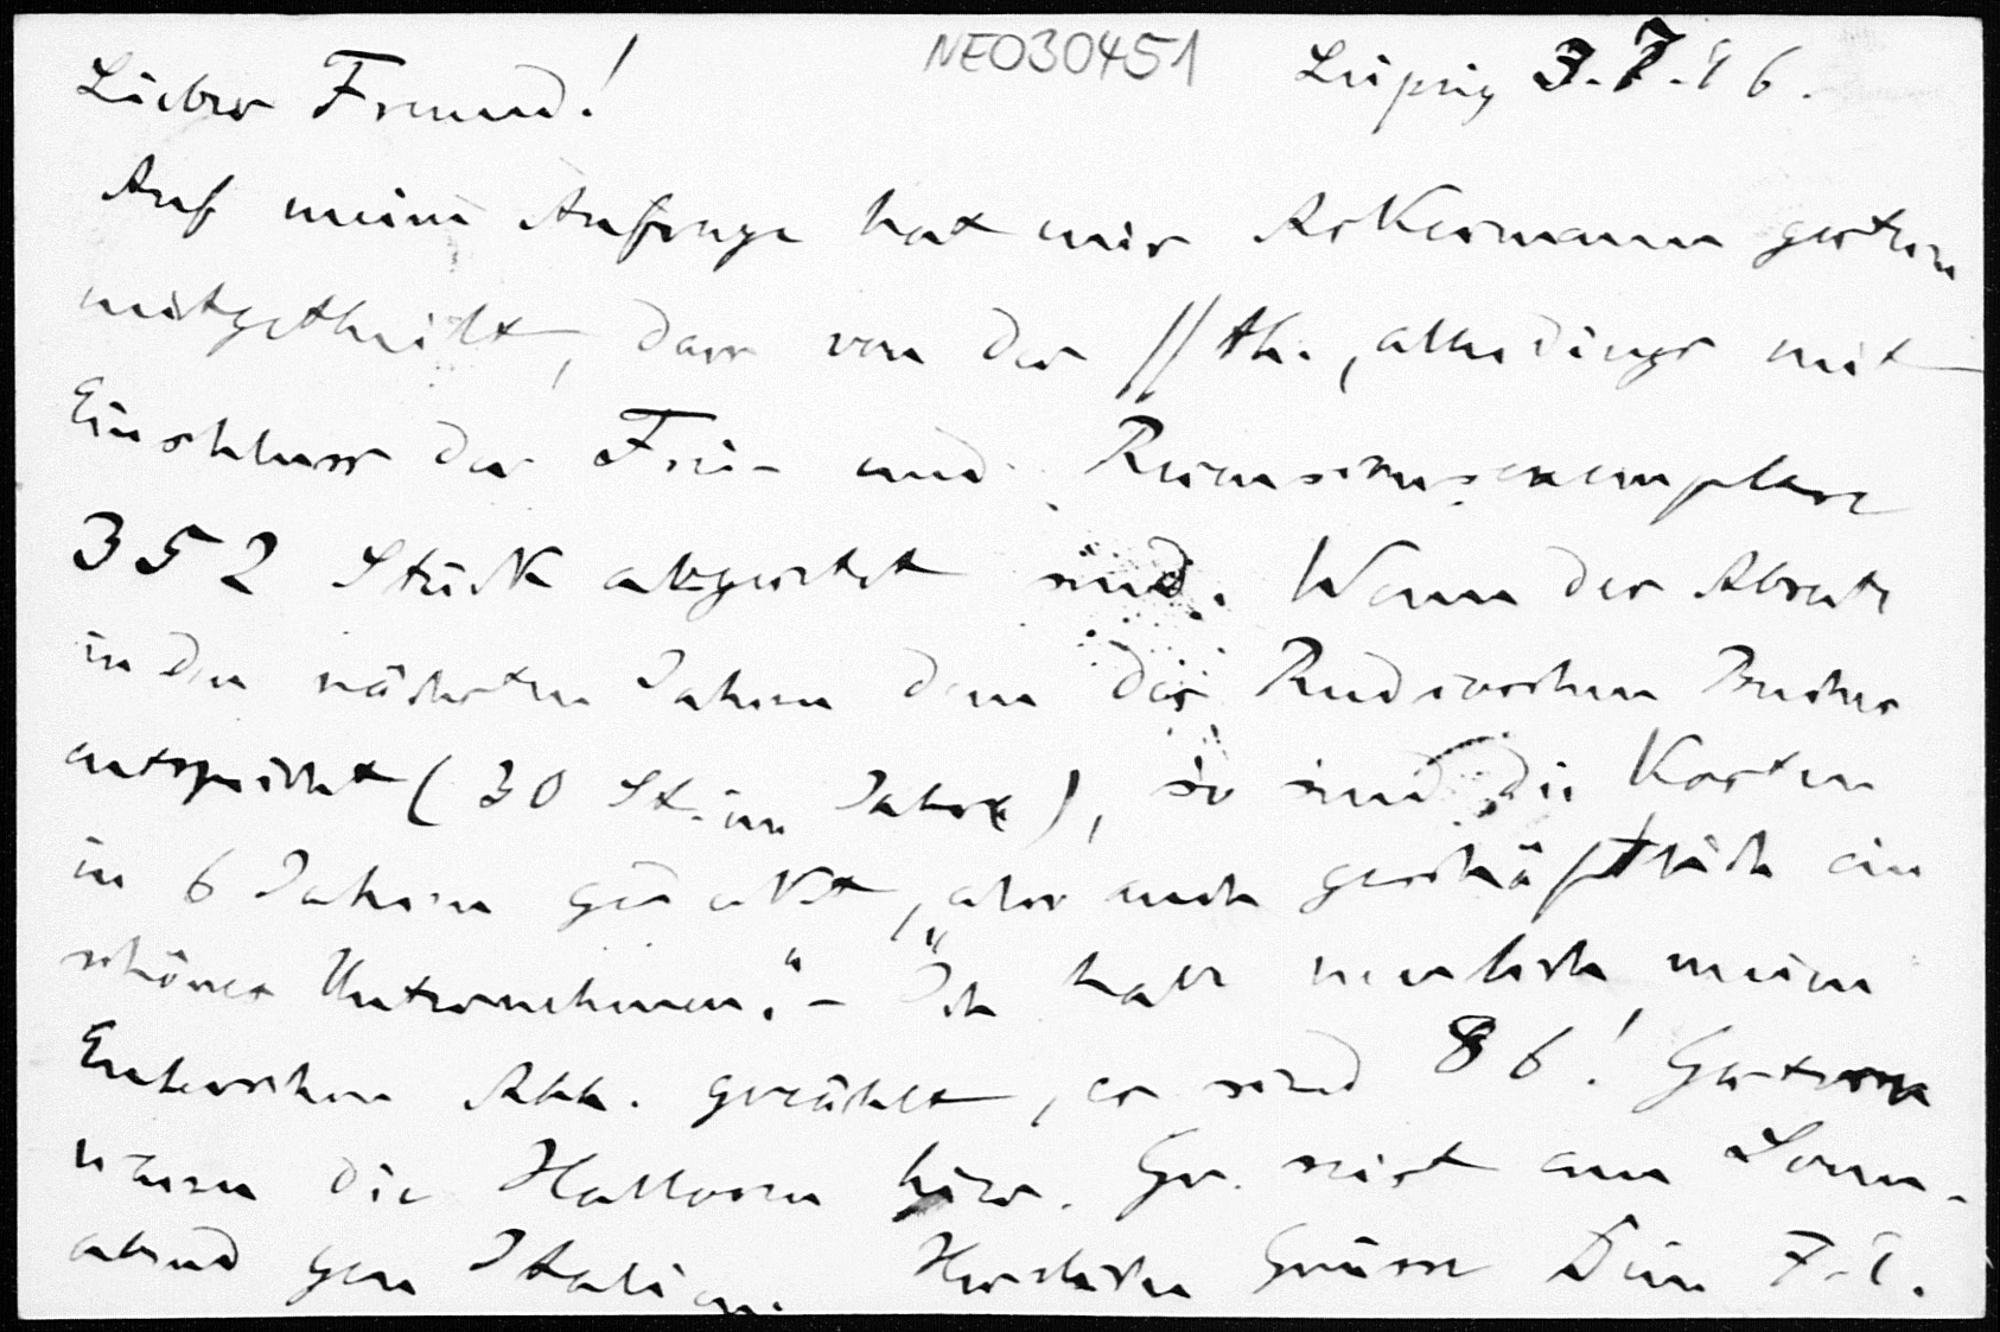 NE030451
Lieber Freund! Leipzig 3.7.96.
Auf meine Anfrage hat mir Ackermann gestern
mitgetheilt, dass von der //th., allerdings mit
Einschluss der Frei- und Recensionsexemplare
352 Stück abgesetzt sind. Wenn der Absatz
in den nächsten Jahren dem des Rudioschen Buches
entspricht (30 St. im Jahre), so sind die Kosten
in 6 Jahren gedeckt, also auch geschäftlich „ein
schönes Unternehmen." – Ich habe neulich meine
Eulerschen Abh. gezählt, es sind 86! Gestern
waren die Halloren hier. Gr. reist am Sonn-
abend gen Italien. Herzliche Grüsse Dein F. E.